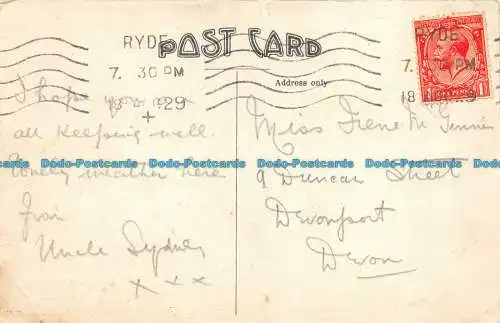 RYDE
7. 30 PM
29
POST CARD
Address only
RYDE
7. PM
18
ONE PENNY
1
I hope you are
all keeping well.
Lovely weather here
from
Uncle Sydney
x x x
Miss Irene M.
9 Duncan Street
Devonport
Devon
Dodo-Postcards Dodo-Postcards Dodo-Postcards Dodo-Postcards Dodo-Postcards